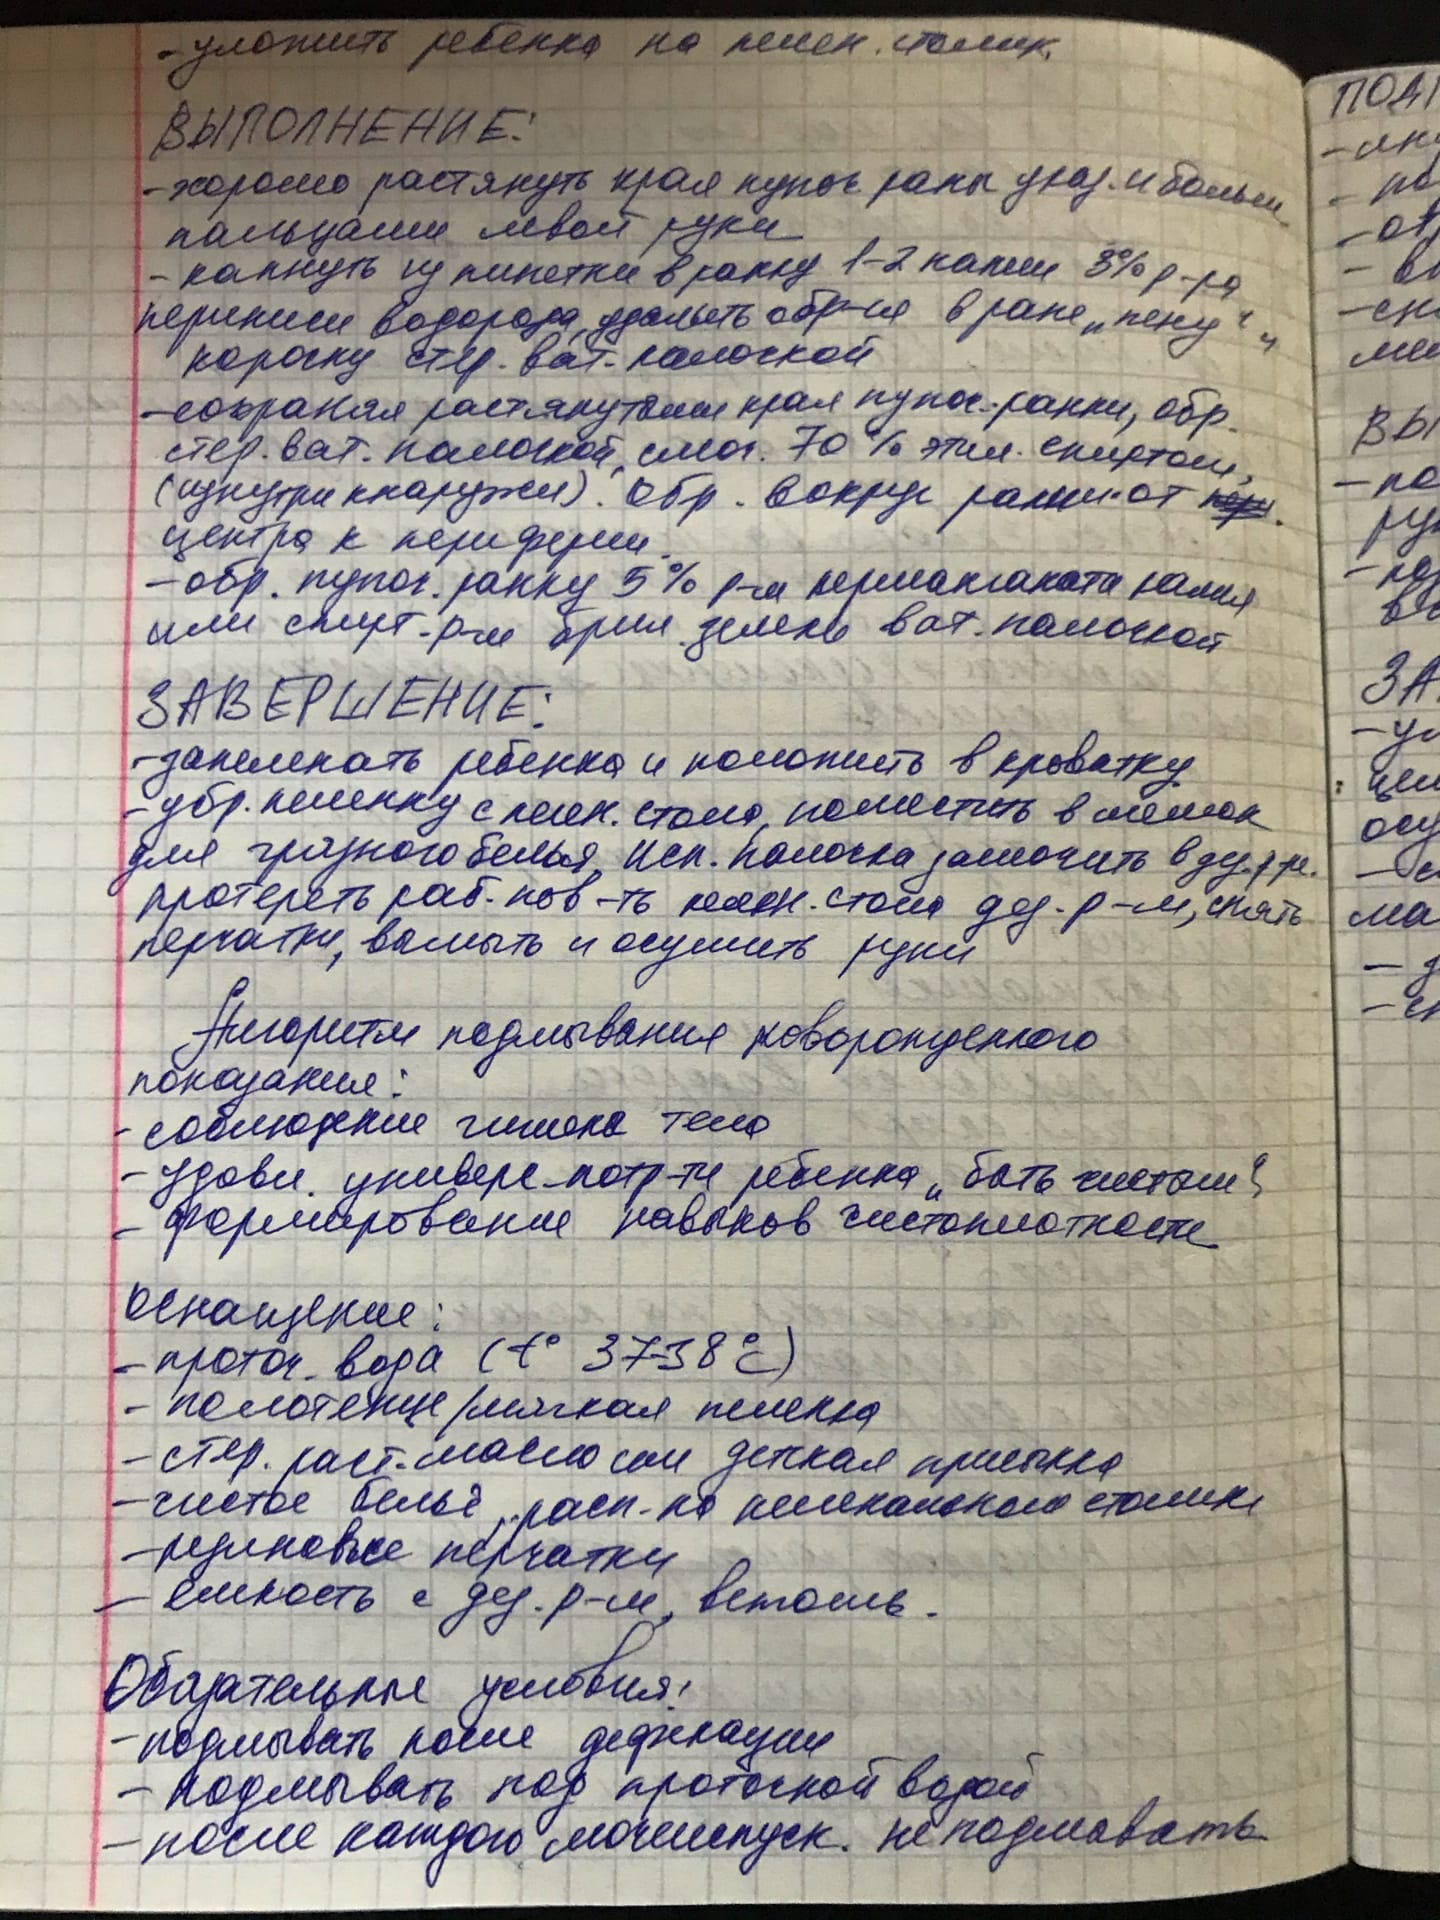 - уложить ребенка на пелен. столик.
ВЫПОЛНЕНИЕ:
- хорошо растянуть края пупоч. раны указ. и больш.
пальцами левой руки
- капнуть из пипетки в ранку 1-2 капли 3% р-ра
перекиси водорода, удалить обр-ся в ране „пену" и
корочку стер. ват. палочкой
- сохраняя растянутыми края пупоч. ранки, обр.
стер. ват. палочкой, смоч. 70% этил. спиртом,
(изнутри кнаружи). Обр. вокруг ранки от
центра к периферии.
- обр. пупоч. ранку 5% р-м перманганата калия
или спирт. р-м брил. зелени ват. палочкой
ЗАВЕРШЕНИЕ:
- запеленать ребенка и положить в кроватку
- убр. пеленку с пелен. стола, поместить в мешок
для грязного белья, исп. палочки замочить в дез. р-ре.
протереть раб. пов-ть пелен. стола дез. р-м, снять
перчатки, вымыть и осушить руки
Алгоритм подмывания новорожденного
показания:
- соблюдение гигиены тела
- удовл. универс. потр-ти ребенка „быть чистым"
- формирование навыков чистоплотности
Оснащение:
- проточ. вода (t° 37-38°C)
- полотенце/мягкая пеленка
- стер. раст. масло или детская присыпка
- чистое бельё, расп. на пеленальном столике
- резиновые перчатки
- емкость с дез. р-м, ветошь.
Обязательные условия:
- подмывать после дефекации
- подмывать под проточной водой
- после каждого мочеиспуск. не подмывать
ПОДГ
ВЫ
ЗА